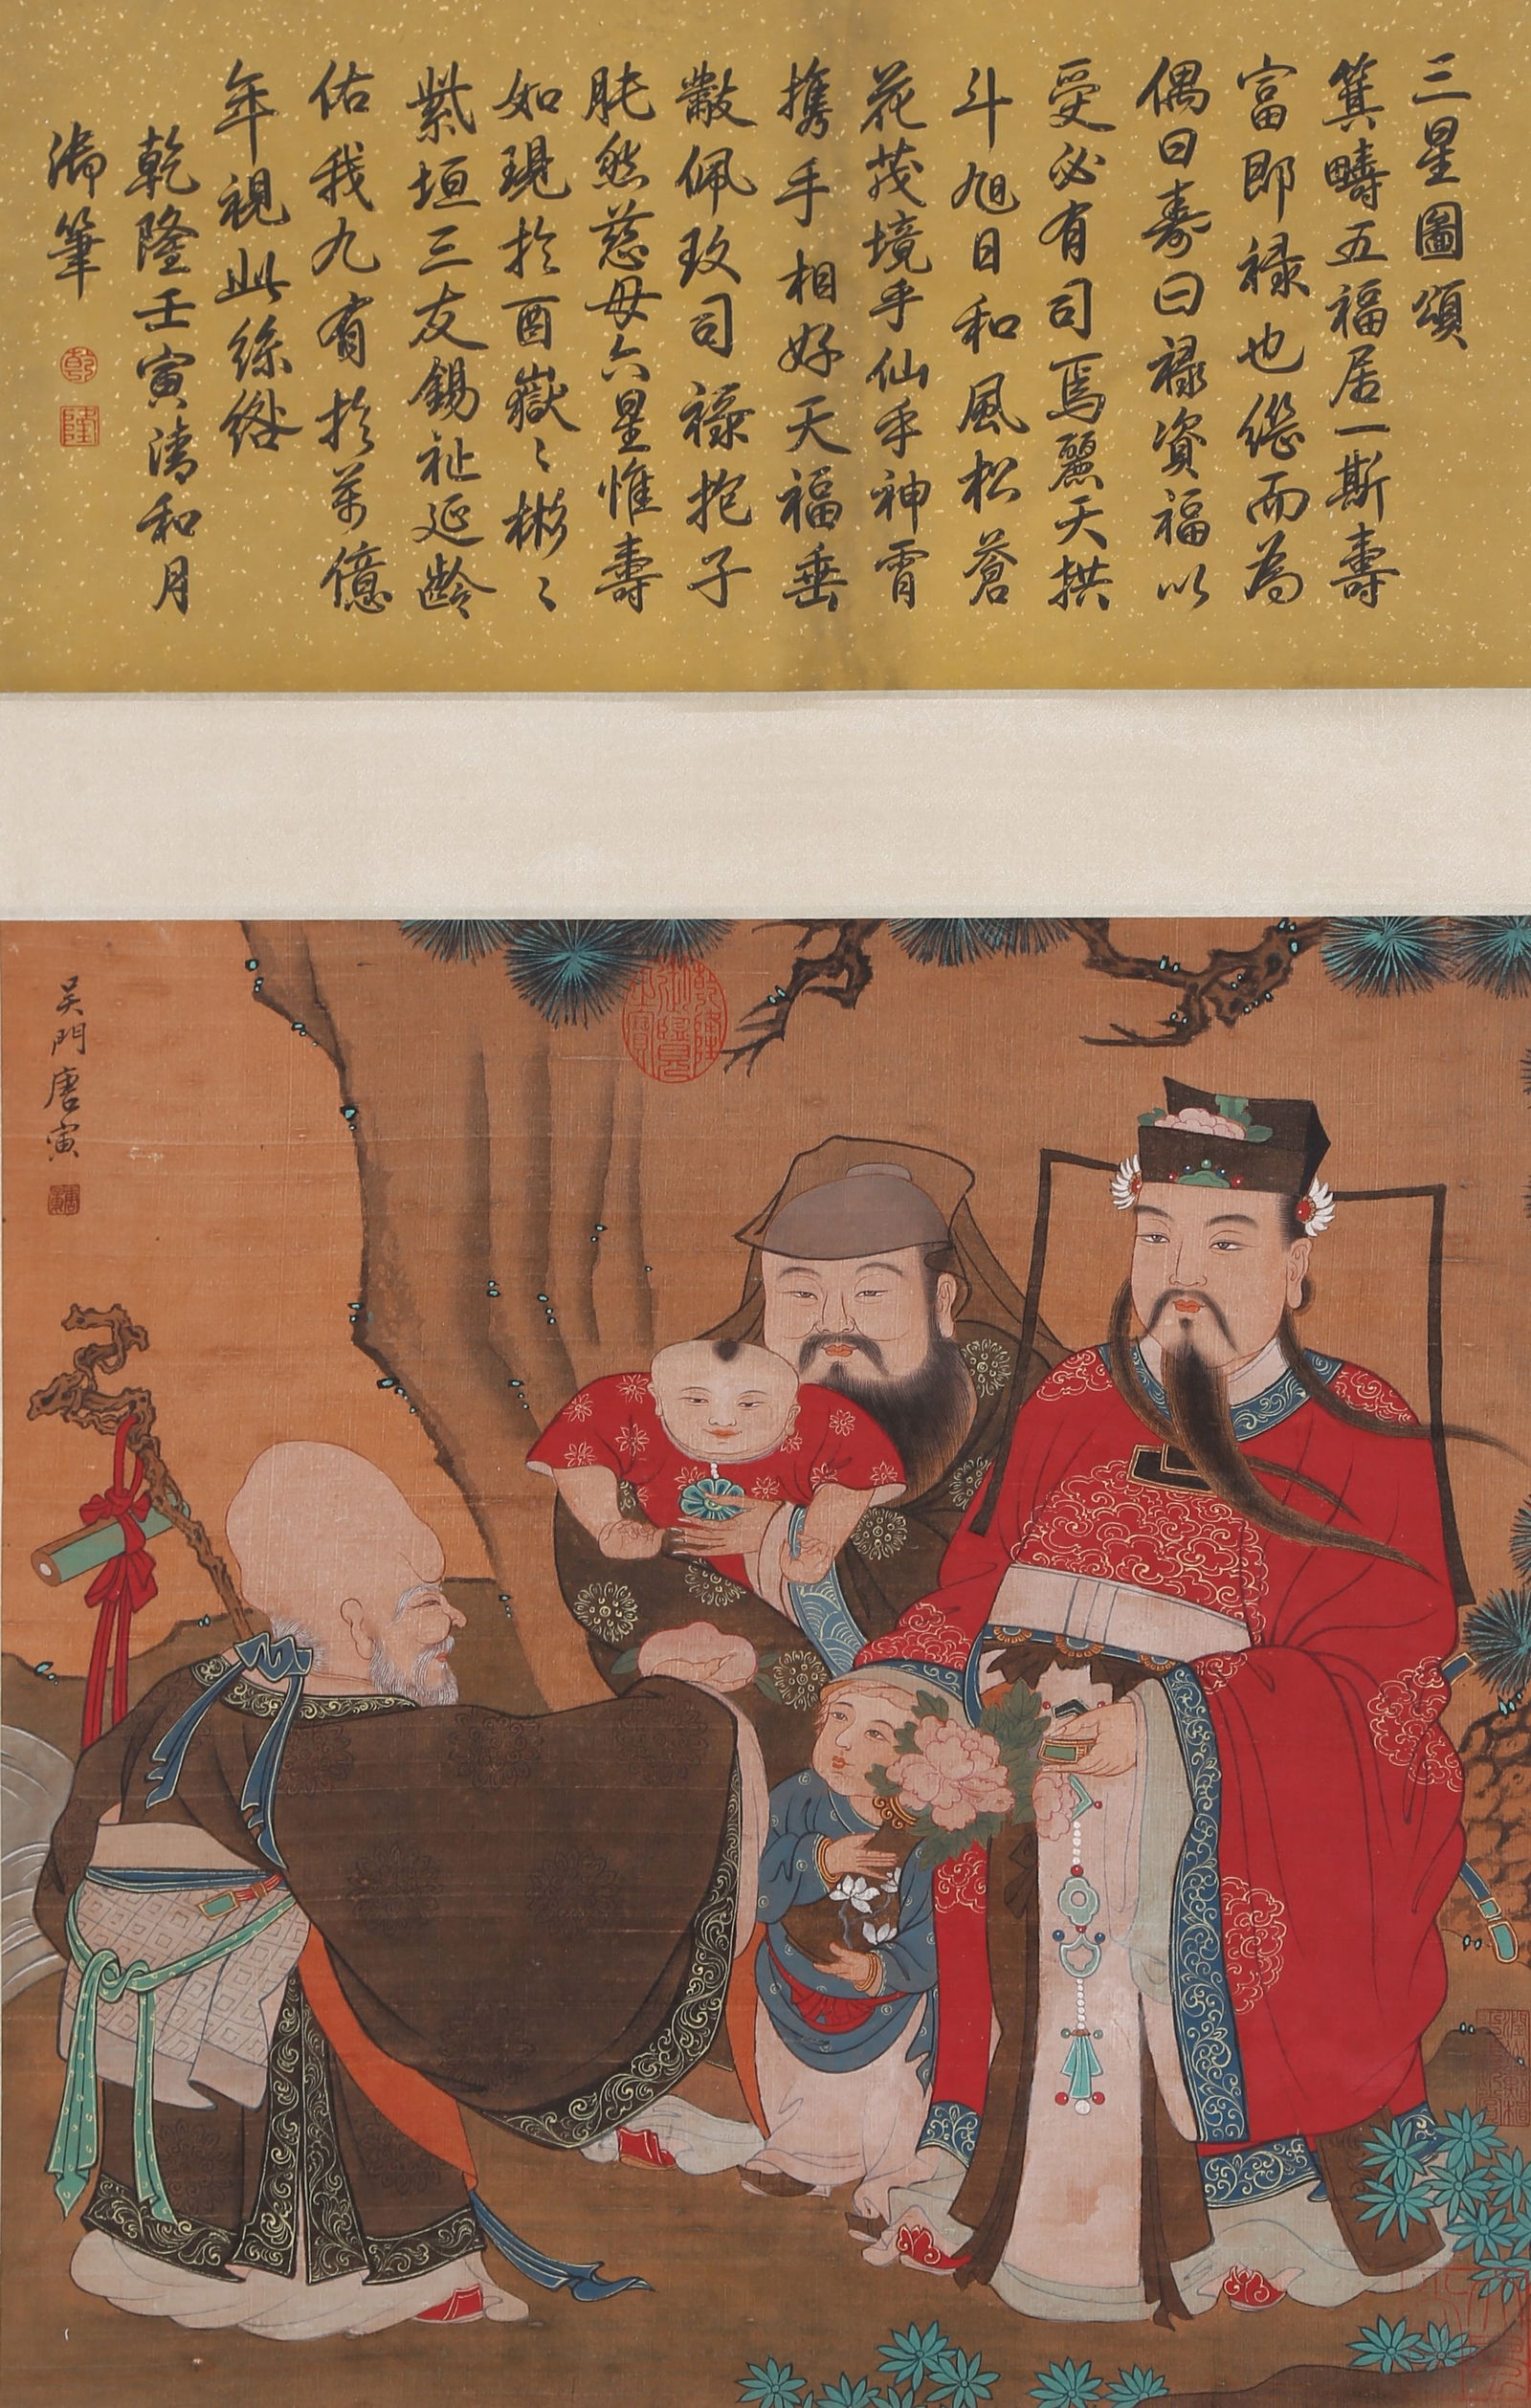 三星圖頌
箕疇五福居一斯壽
富即祿也繼而為
偶曰壽曰祿資福以
受必有司焉麗天拱
斗旭日和風松蒼
花茂境乎仙乎神霄
攜手相好天福垂
黻佩玫司祿抱子
肫然慈母六星惟壽
如現於酉嶽〻彬〻
紫垣三友錫祉延齡
佑我九有於萬億
年視此絲綹
乾隆壬寅清和月
御筆
乾
隆
吳門唐寅
乾隆御覽之寶